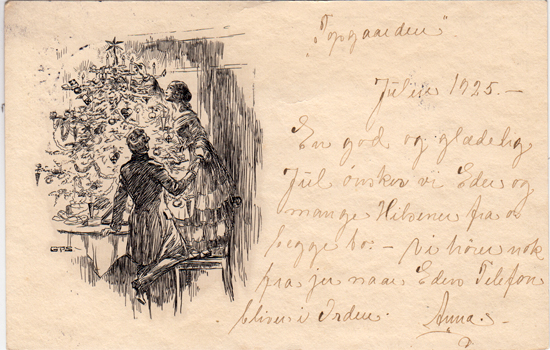 "Topgaarden"
Julen 1925.-
En god og glædelig
Jul ønsker vi Eder og
mange Hilsener fra os
begge to:- Vi hører nok
fra jer naar Eders Telefon
bliver i Orden. Anna.